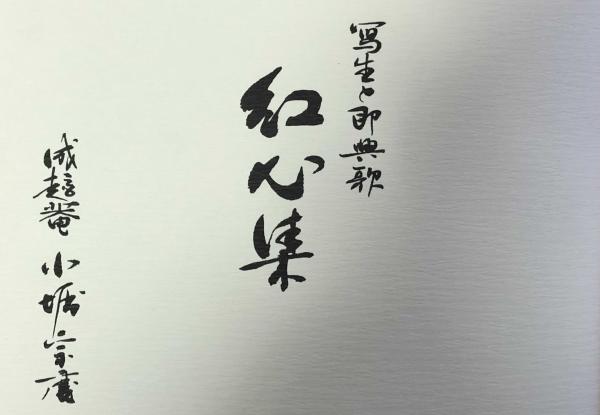 写生と即興歌
紅心集
成趣庵 小堀宗慶